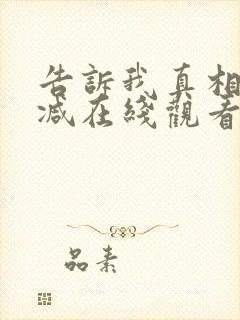 告訴我真相
減在綫觀看
品素